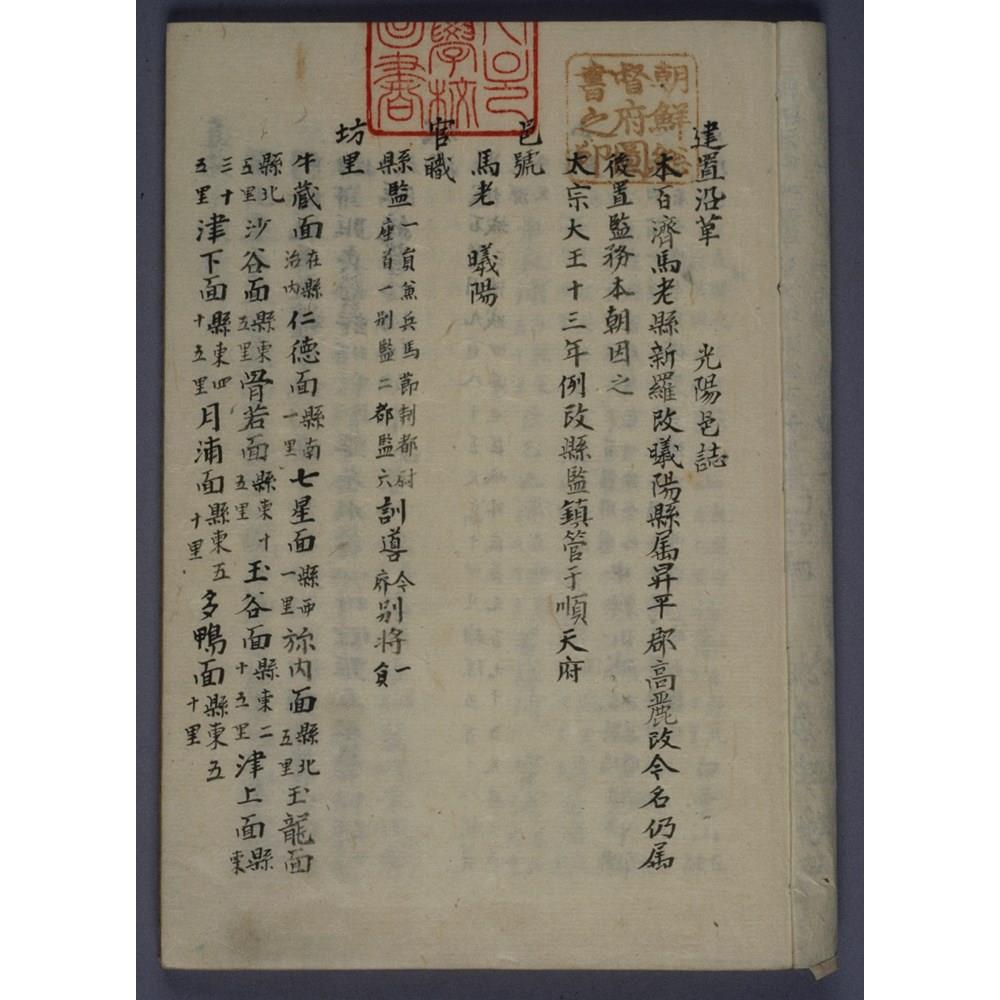 建置沿革 光陽邑誌
本百濟馬老縣新羅改曦陽縣属昇平郡高麗改今名仍属
後置監務本朝因之
太宗大王十三年例改縣監鎮管于順天府
邑號
馬老 曦陽
官職
縣監一員兼兵馬節制都尉座首一別監二都監六訓導今廃別将一員
坊里
牛蔵面在縣治内仁徳面縣南一里七星面縣西一里旀内面縣北五里玉龍面
縣北五里沙谷面縣東五里骨若面縣東十五里玉谷面縣東二十五里津上面縣東
三十五里津下面縣東四十五里月浦面縣東五十里多鴨面縣東五十里
朝鮮總
督府圖
書之印
學校
書